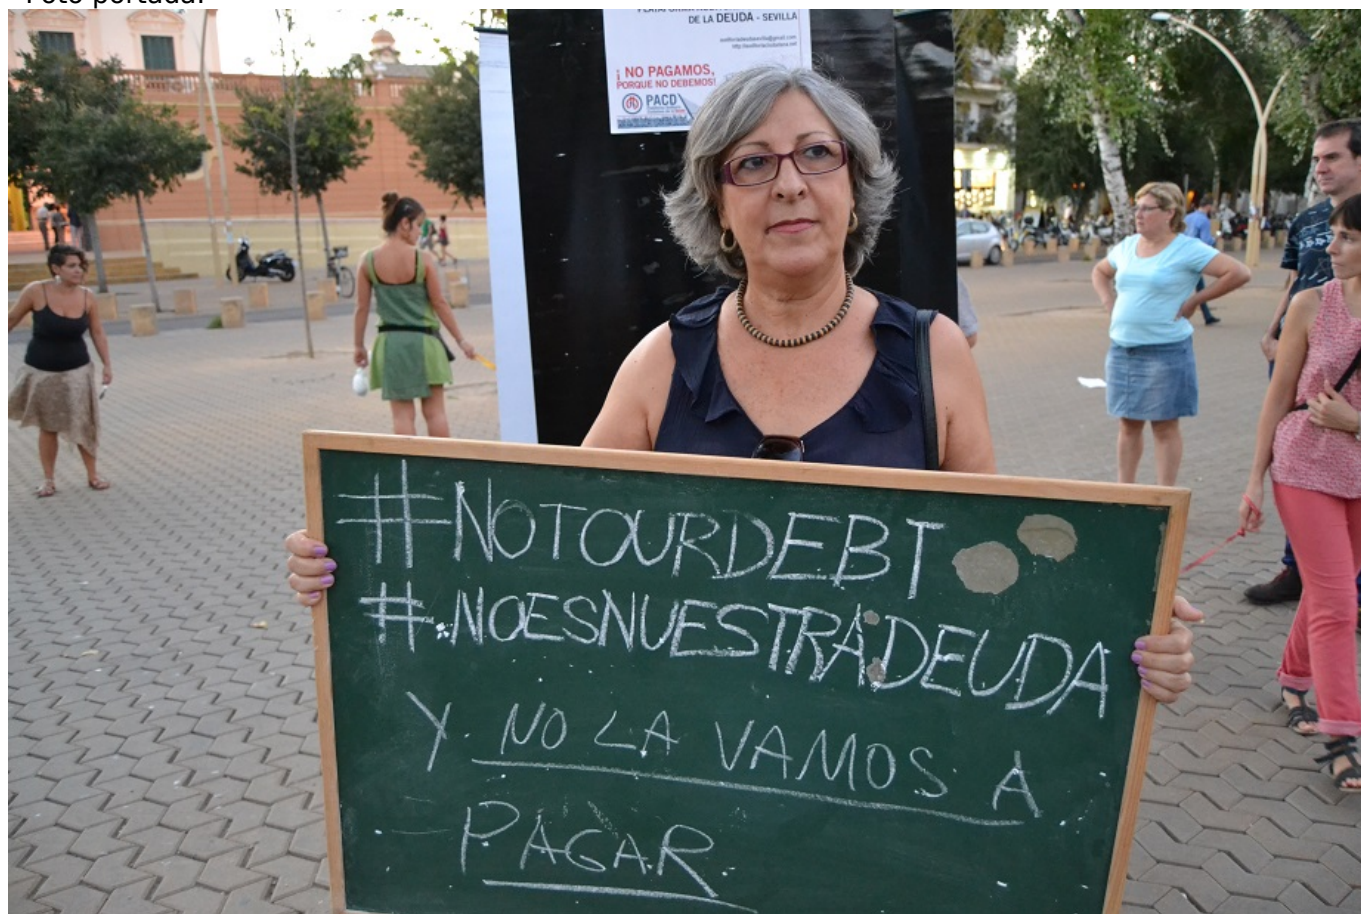 Foto portada:
DE LA DEUDA - SEVILLA
¡ NO PAGAMOS,
PORQUE NO DEBEMOS!
PACD
#NOTOURDEBT
#NOESNUESTRADEUDA
Y NO LA VAMOS A
PAGAR